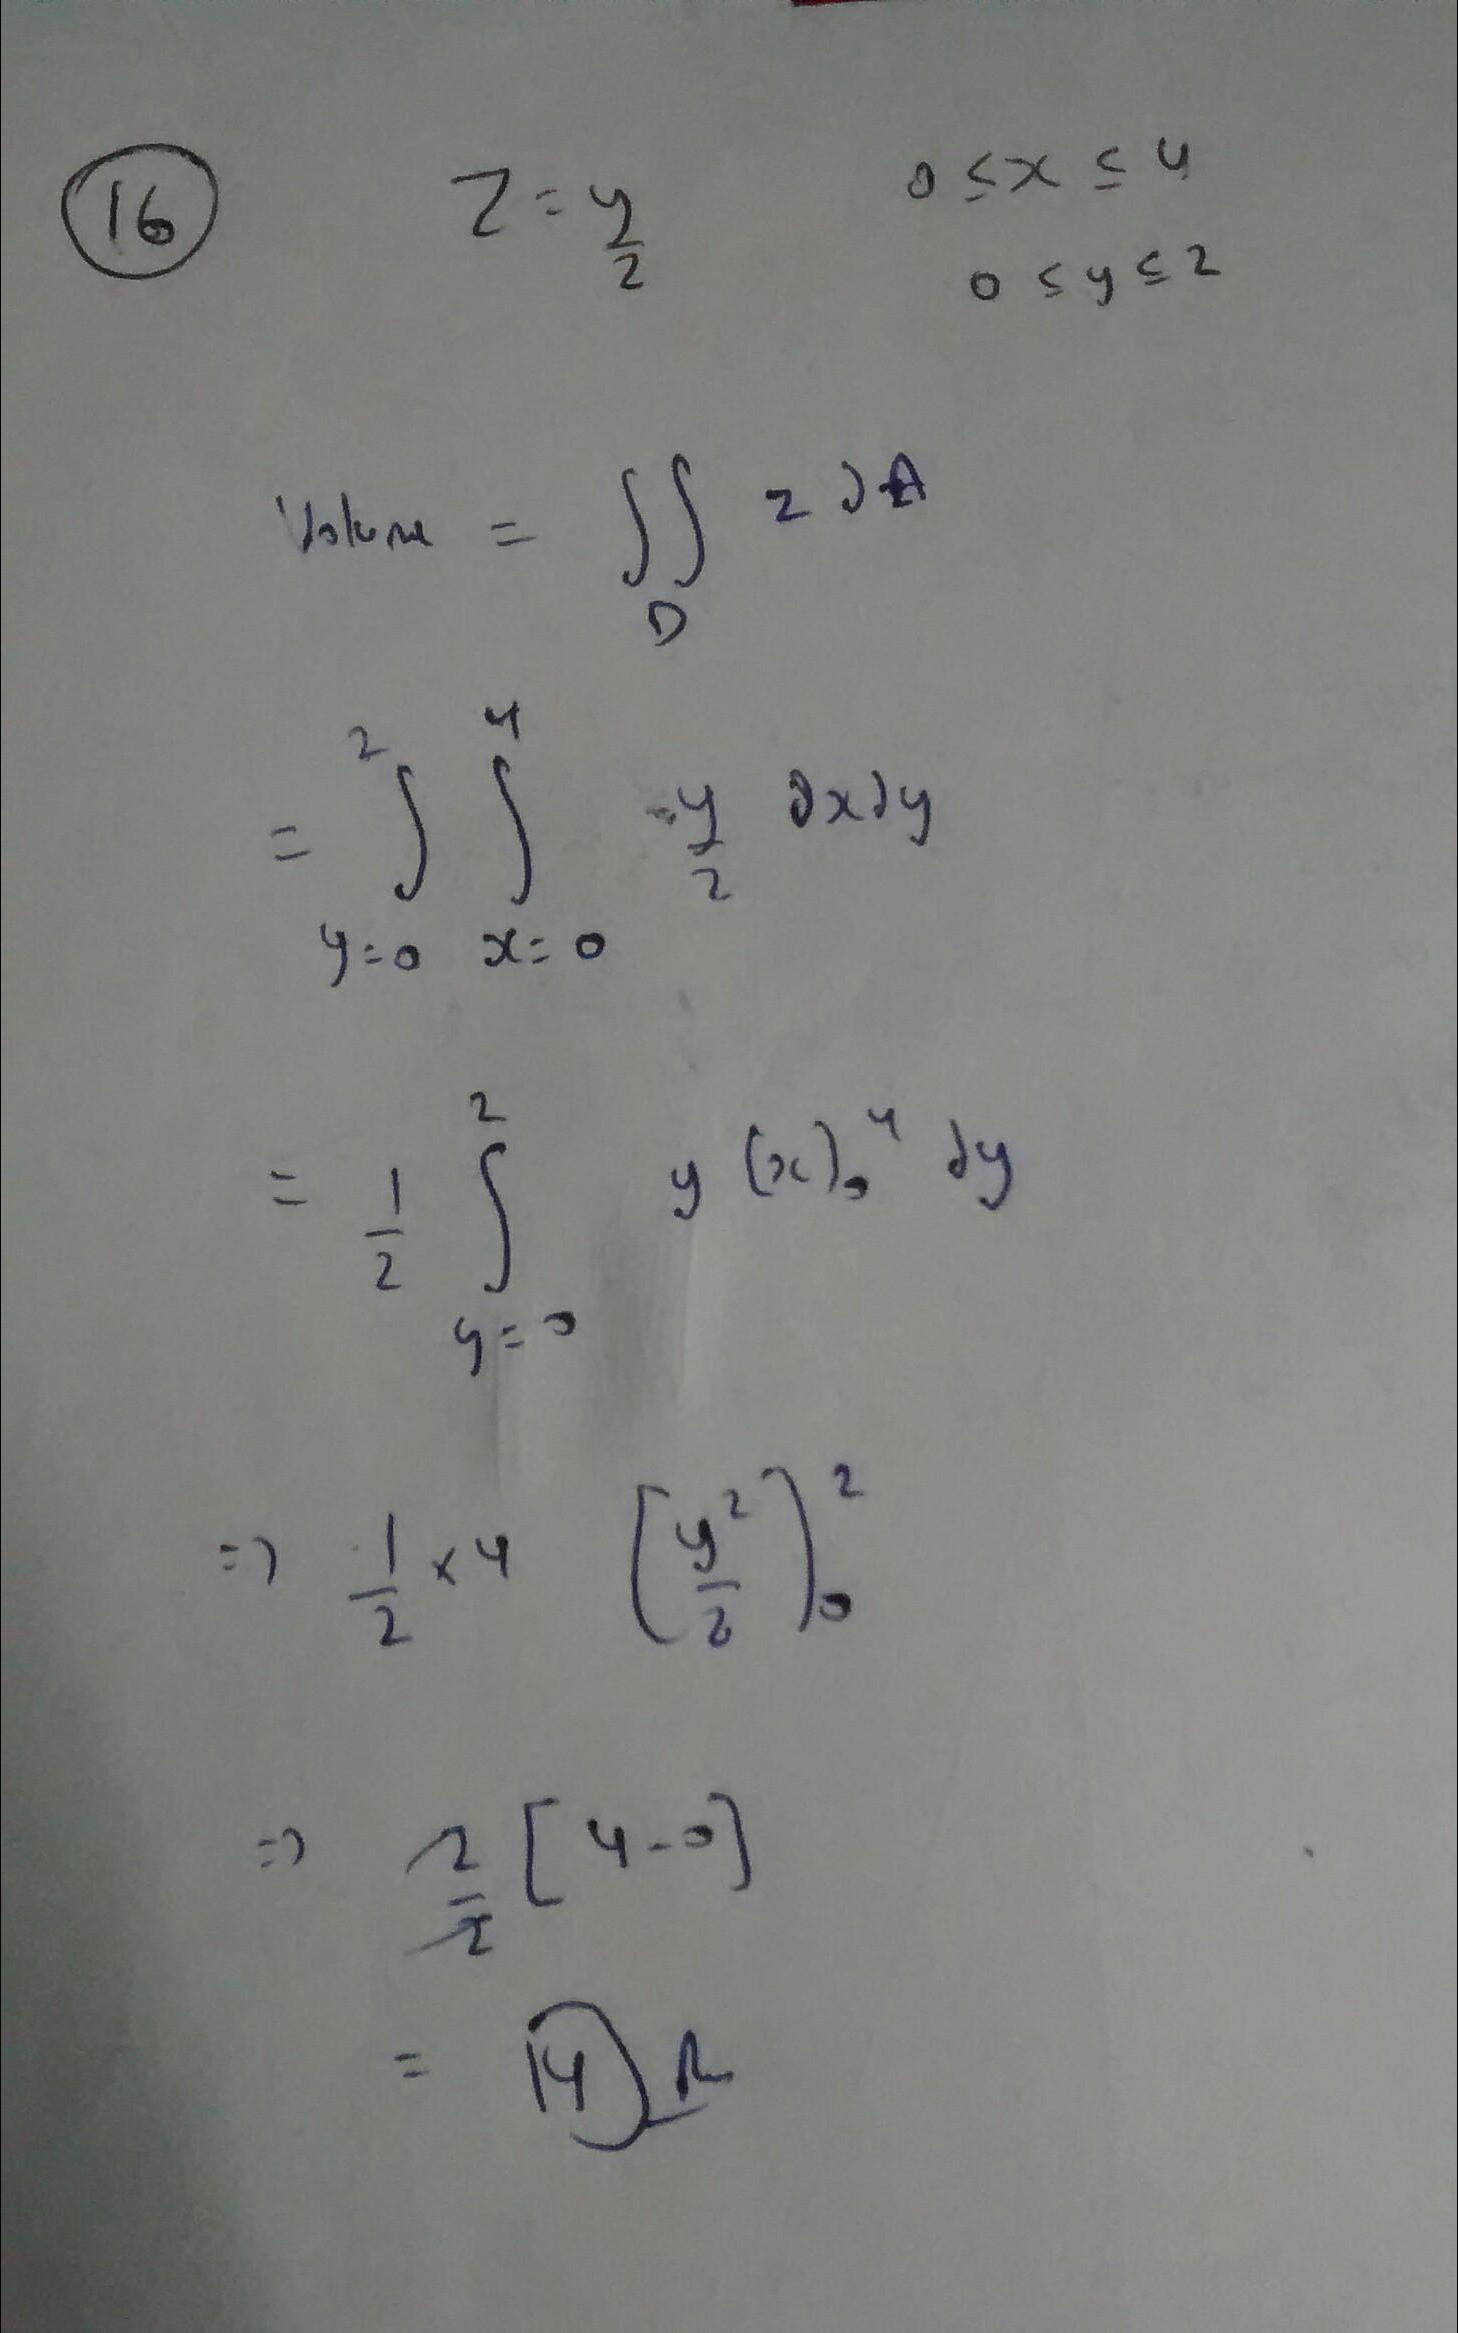 16 Z = y/2 0 ≤ x ≤ 4
0 ≤ y ≤ 2
Volume = ∬_D z dA
= ∫_{y=0}^{2} ∫_{x=0}^{4} y/2 dx dy
= 1/2 ∫_{y=0}^{2} y (x)_0^4 dy
=> 1/2 × 4 [y²/2]_0^2
=> 2/2 [4-0]
= 4